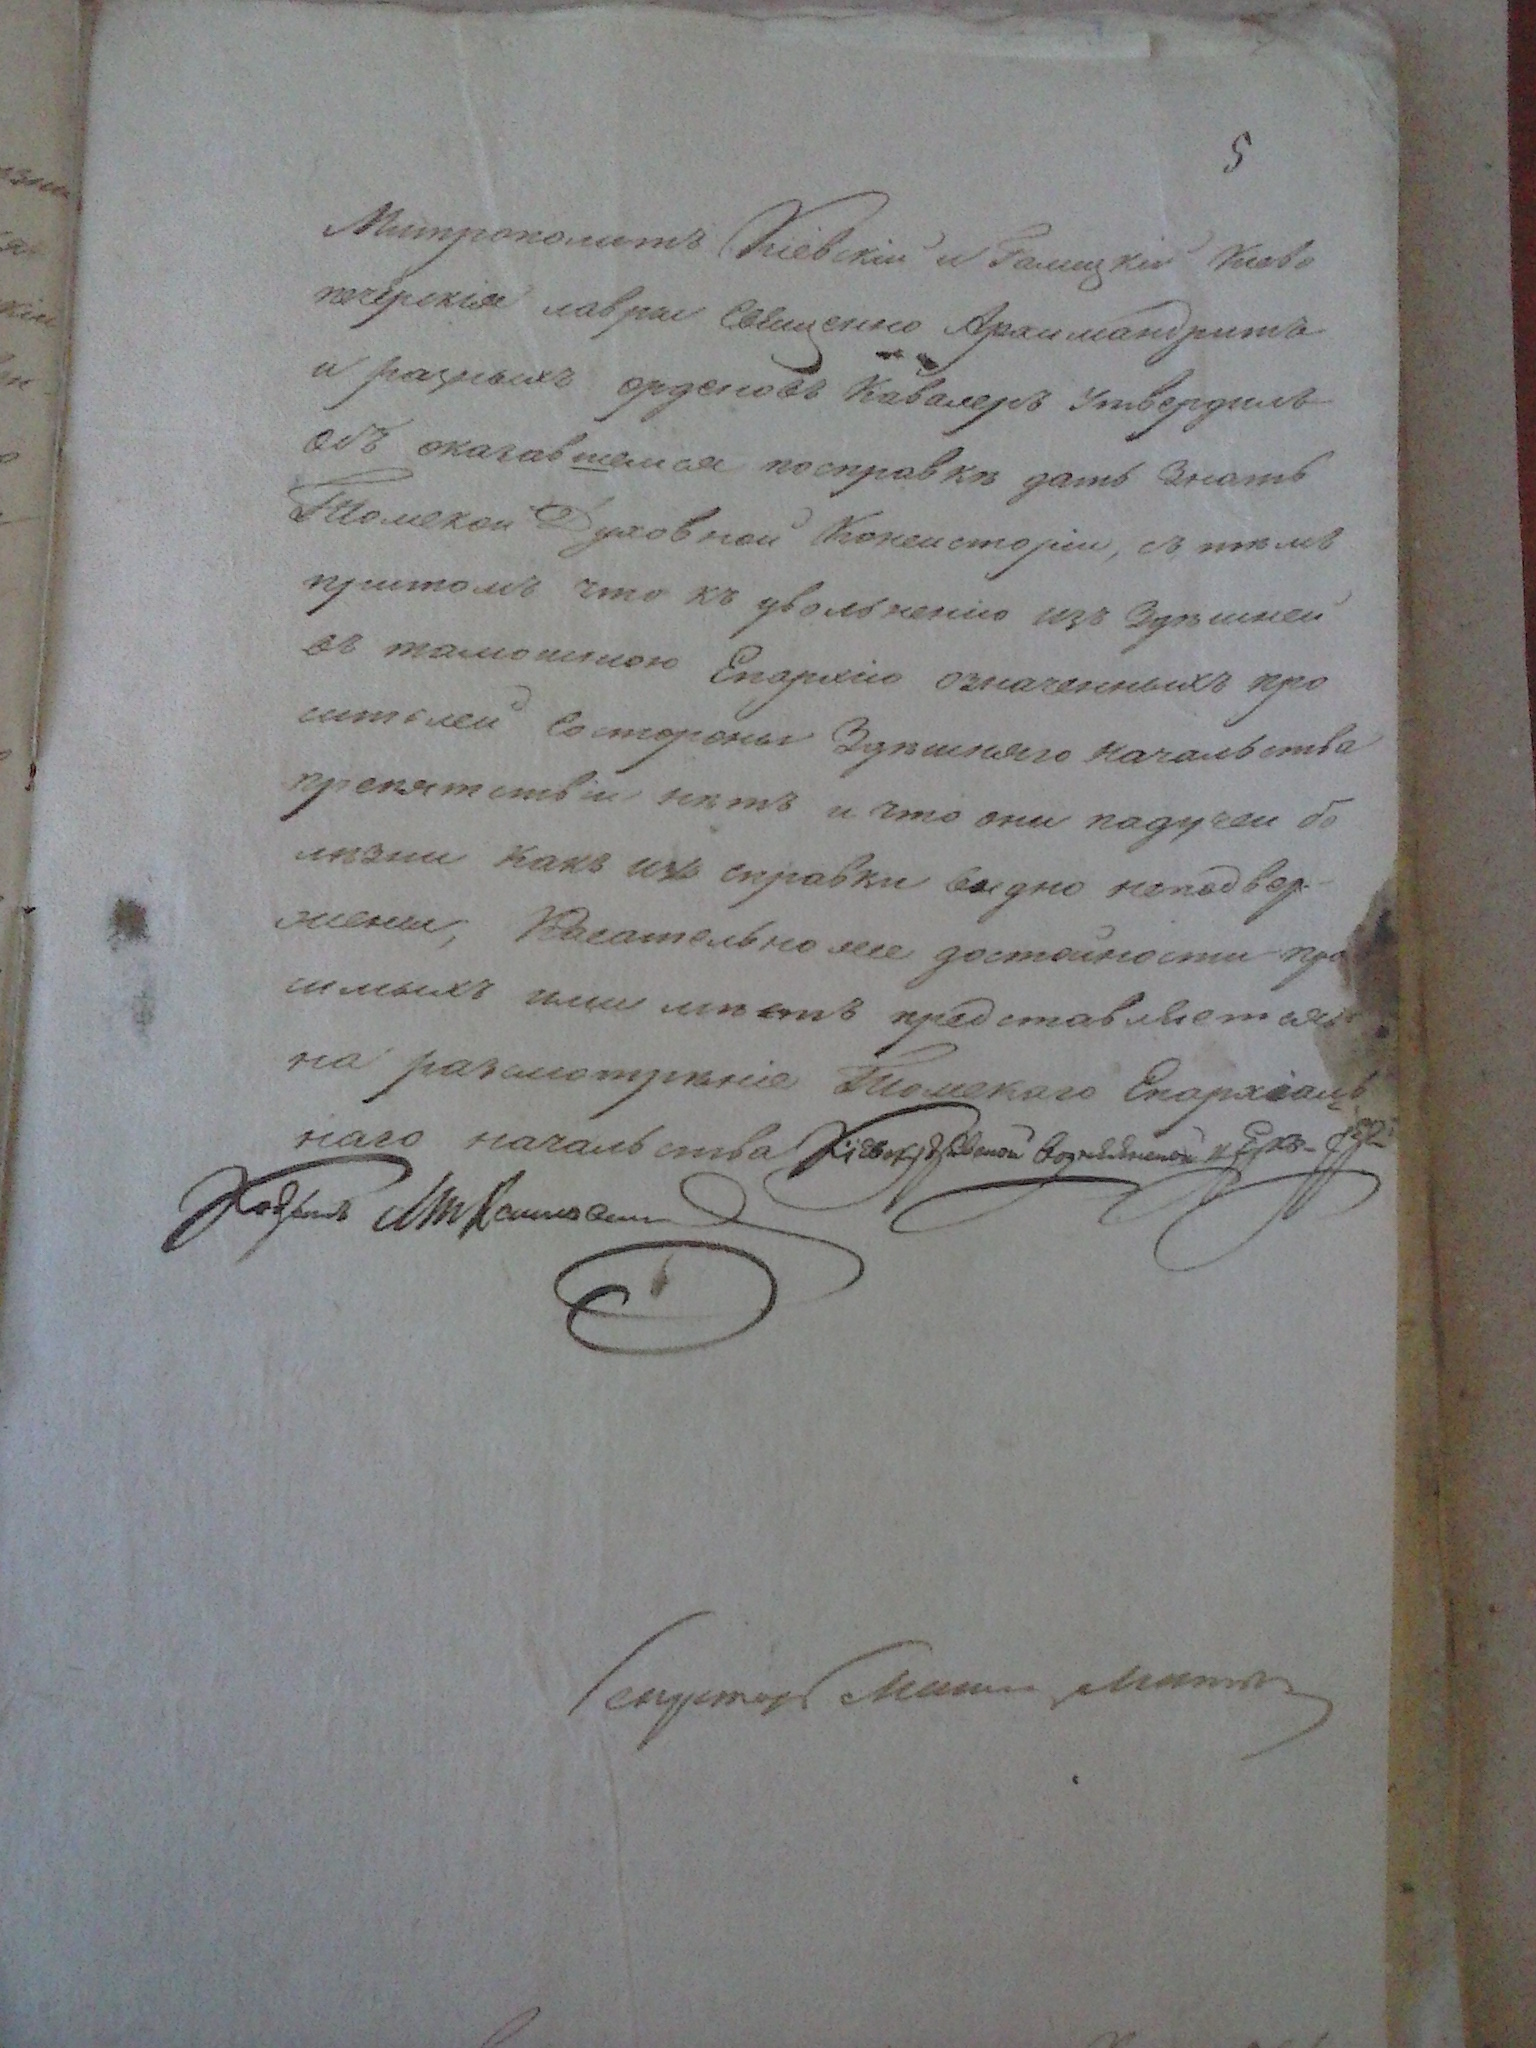 5
Митрополитъ Кіевскій и Галицкій Кіево
печерскія лавры Священно Архимандритъ
и разныхъ орденовъ Кавалеръ Утвердилъ
Объ оказавшемся посправкѣ дать знать
Томской Духовной Консисторіи, съ тѣмъ
притомъ что къ увольненію изъ Здѣшней
въ тамошнюю Епархію означенныхъ про
сителей состороны Здѣшняго начальства
препятствій нѣтъ и что они падучей бо
лѣзни какъ изъ справки видно неподвер-
жены, Касательноже достойности про
симыхъ ими мѣстъ представляется
на разсмотрѣніе Томскаго Епархіаль
наго начальства